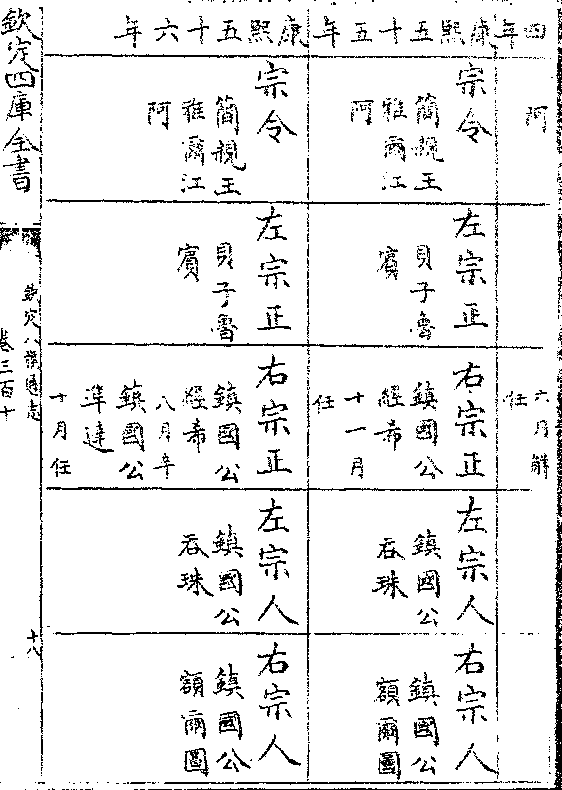 四年
阿
六月解
任
康熙五十五年
宗令
簡親王
雅爾江
阿
左宗正
貝子魯
賓
右宗正
鎮國公
經希
十一月
任
左宗人
鎮國公
吞珠
右宗人
鎮國公
額爾圖
康熙五十六年
宗令
簡親王
雅爾江
阿
左宗正
貝子魯
賓
右宗正
鎮國公
經希
八月卒
鎮國公
準達
十月任
左宗人
鎮國公
吞珠
右宗人
鎮國公
額爾圖
欽定四庫全書
欽定八旗通志
卷三百十
十八